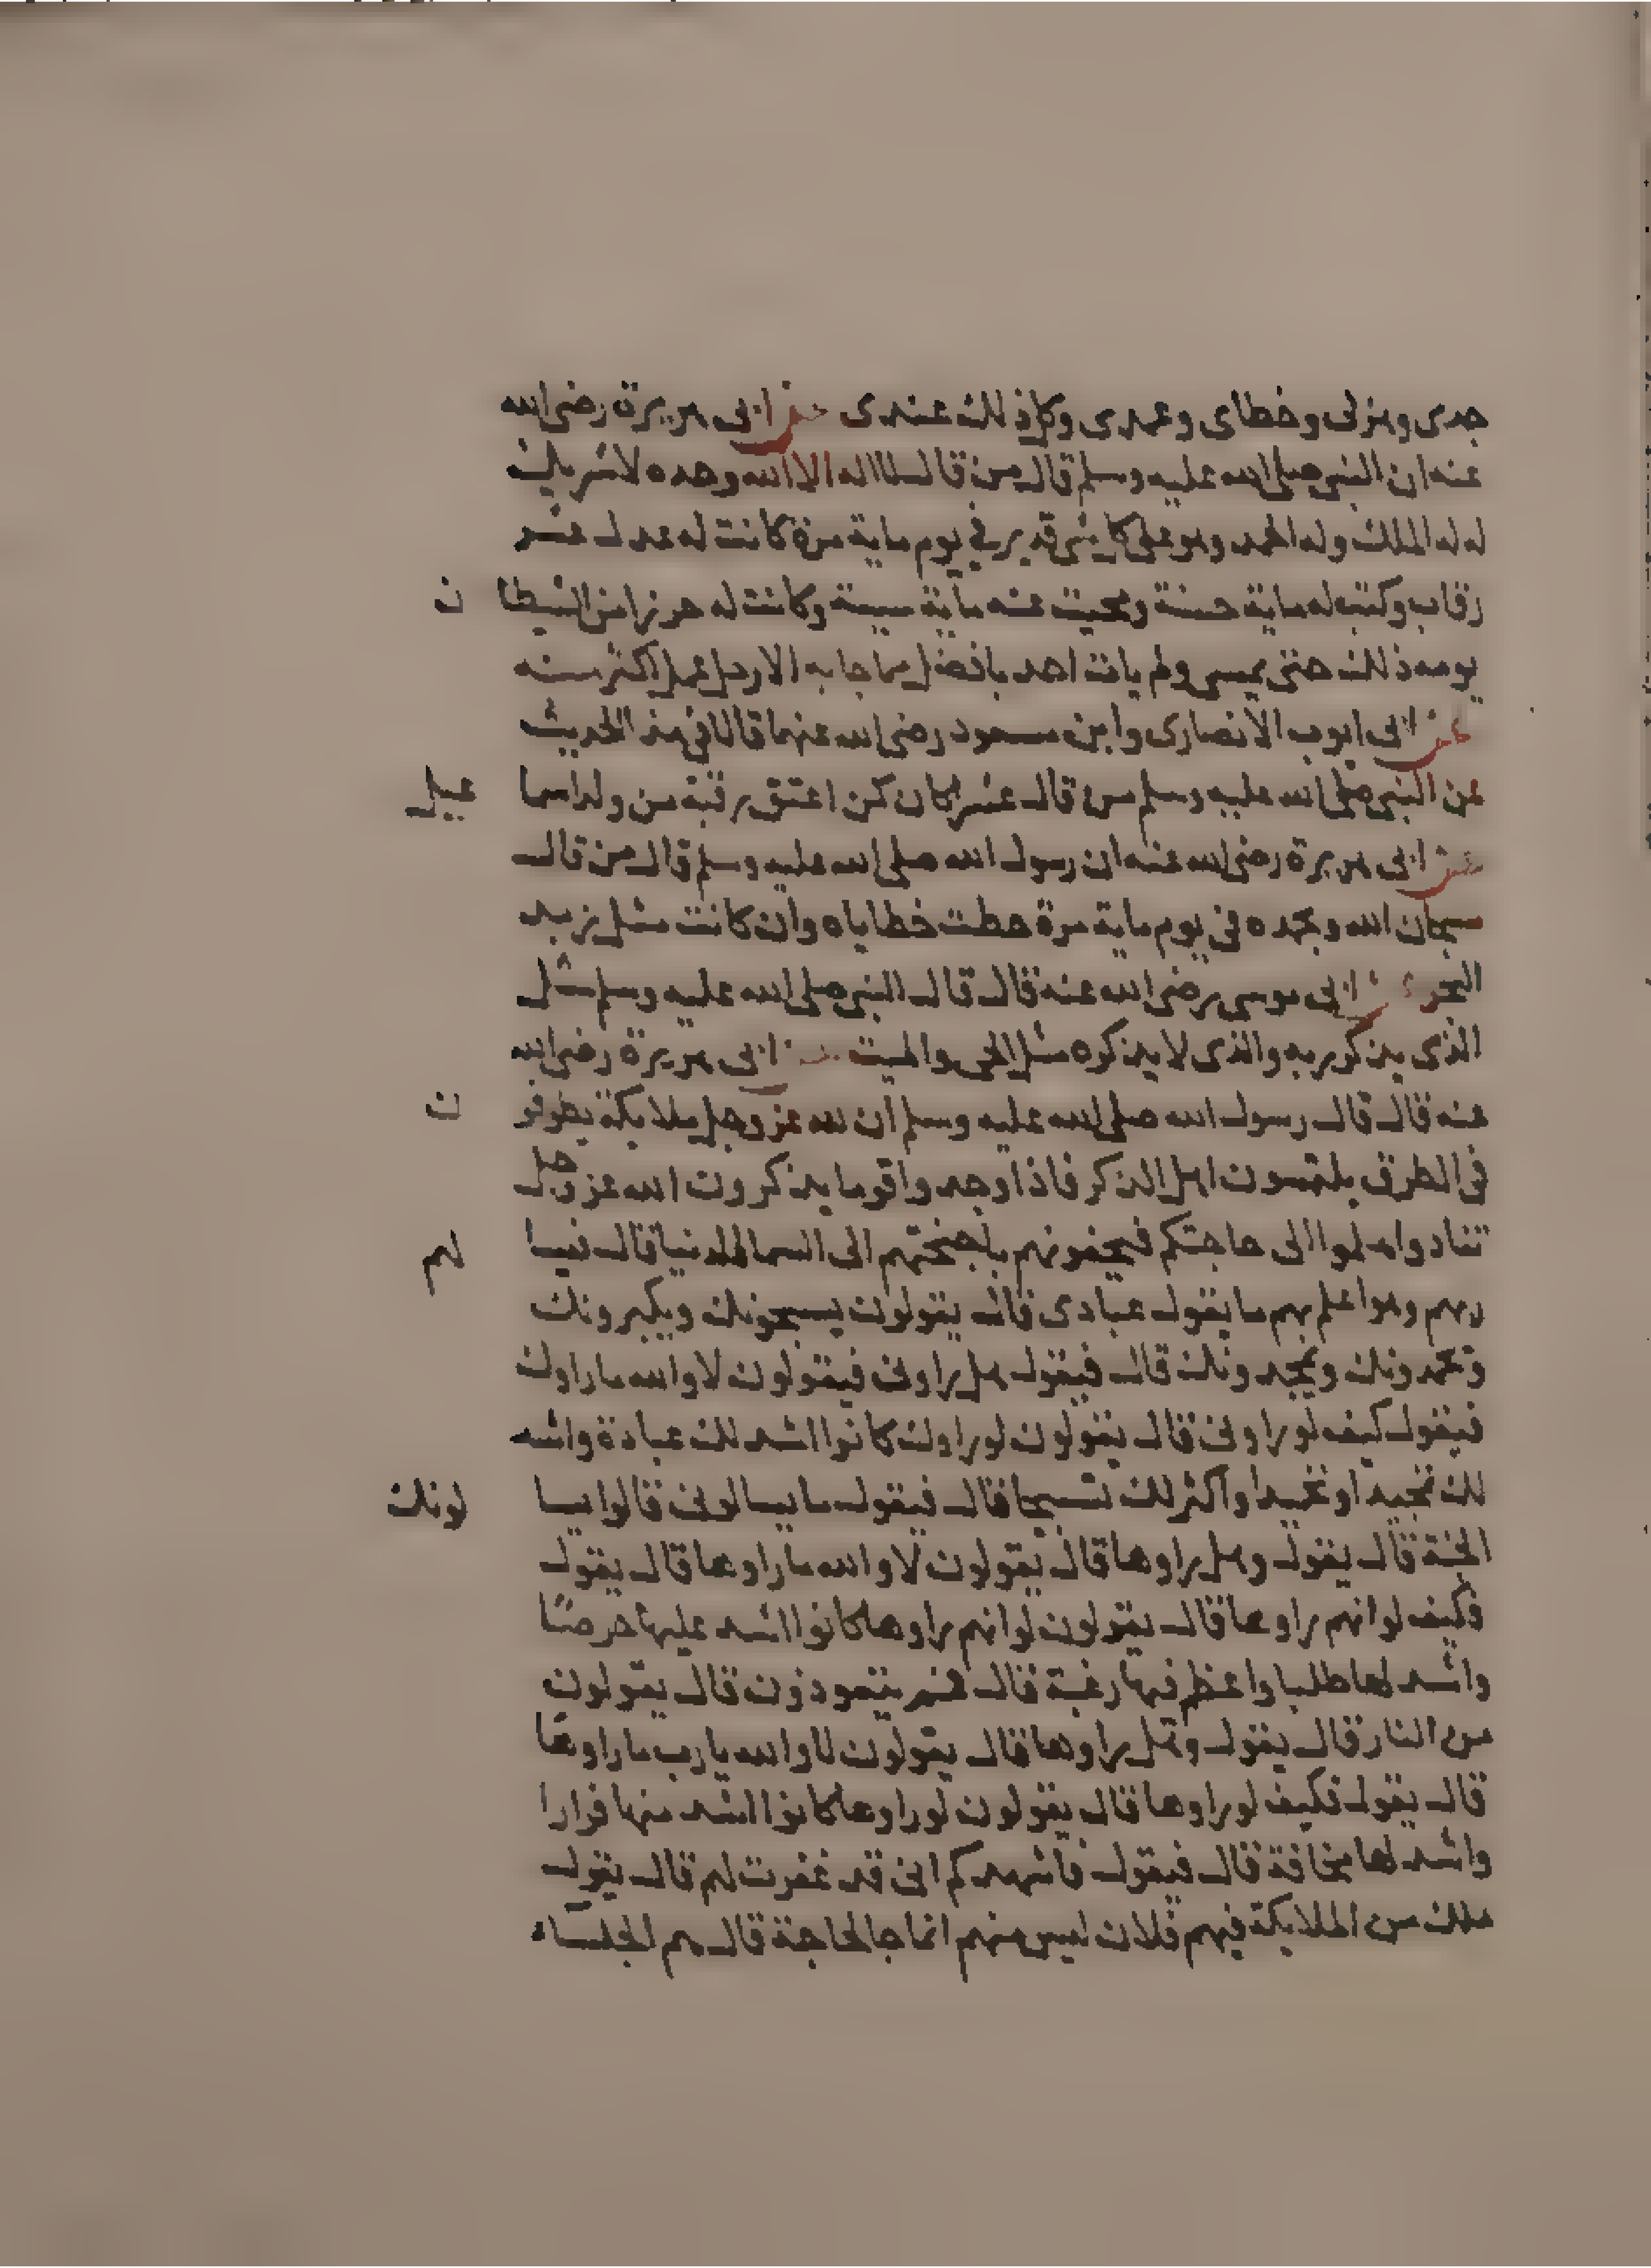 جدى وهزلى وخطاى وعمدى وكل ذلك عندى عن ابى هريرة رضى الله
عنه ان النبى صلى الله عليه وسلم قال من قال لا اله الا الله وحده لا شريك
له له الملك وله الحمد وهو على كل شى قدير فى يوم ماية مرة كانت له عدل عشر
رقاب وكتب له ماية حسنة ومحيت عنه ماية سيية وكانت له حرزا من الشيطان
يومه ذلك حتى يمسى ولم يات احد بافضل مما جا به الا رجل عمل اكثر منه
عن ابى ايوب الانصارى وابن مسعود رضى الله عنهما قالا فى هذ الحديث
عن النبى صلى الله عليه وسلم من قال عشرا كان كمن اعتق رقبة من ولد اسماعيل
عن ابى هريرة رضى الله عنه ان رسول الله صلى الله عليه وسلم قال من قال
سبحان الله وبحمده فى يوم ماية مرة حطت خطاياه وان كانت مثل زبد
البحر عن ابى موسى رضى الله عنه قال قال النبى صلى الله عليه وسلم مثل
الذى يذكر ربه والذى لا يذكره مثل الحى والميت عن ابى هريرة رضى الله
عنه قال قال رسول الله صلى الله عليه وسلم ان لله عز وجل ملايكة يطوفون
فى الطرق يلتمسون اهل الذكر فاذا وجدوا قوما يذكرون الله عز وجل
تنادوا هلموا الى حاجتكم فيحفونهم باجنحتهم الى السما الدنيا قال فيسالهم
ربهم وهو اعلم بهم ما يقول عبادى قال يقولون يسبحونك ويكبرونك
وتحمدونك ويمجدونك قال فيقول هل راونى فيقولون لا والله ما راوك
فيقول كيف لو راونى قال يقولون لو راوك كانوا اشد لك عبادة واشد
لك تمجيدا وتحميدا واكثر لك تسبيحا قال فيقول ما يسالونى قالوا يسالونك
الجنة قال يقول وهل راوها قال يقولون لا والله ما راوها قال يقول
فكيف لو انهم راوها قال يقولون لو انهم راوها كانوا اشد عليها حرصا
واشد لها طلبا واعظم فيها رغبة قال فمم يتعوذون قال يقولون
من النار قال يقول وهل راوها قال يقولون لا والله يا رب ما راوها
قال يقول فكيف لو راوها قال يقولون لو راوها كانوا اشد منها فرارا
واشد لها مخافة قال فيقول فاشهدكم انى قد غفرت لهم قال يقول
ملك من الملايكة فيهم فلان ليس منهم انما جا لحاجة قال هم الجلساء